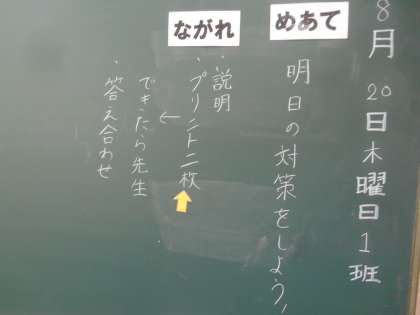 8月20日木曜日1班
めあて
明日の対策をしよう!
ながれ
・説明
・プリント二枚
できたら先生
・答え合わせ